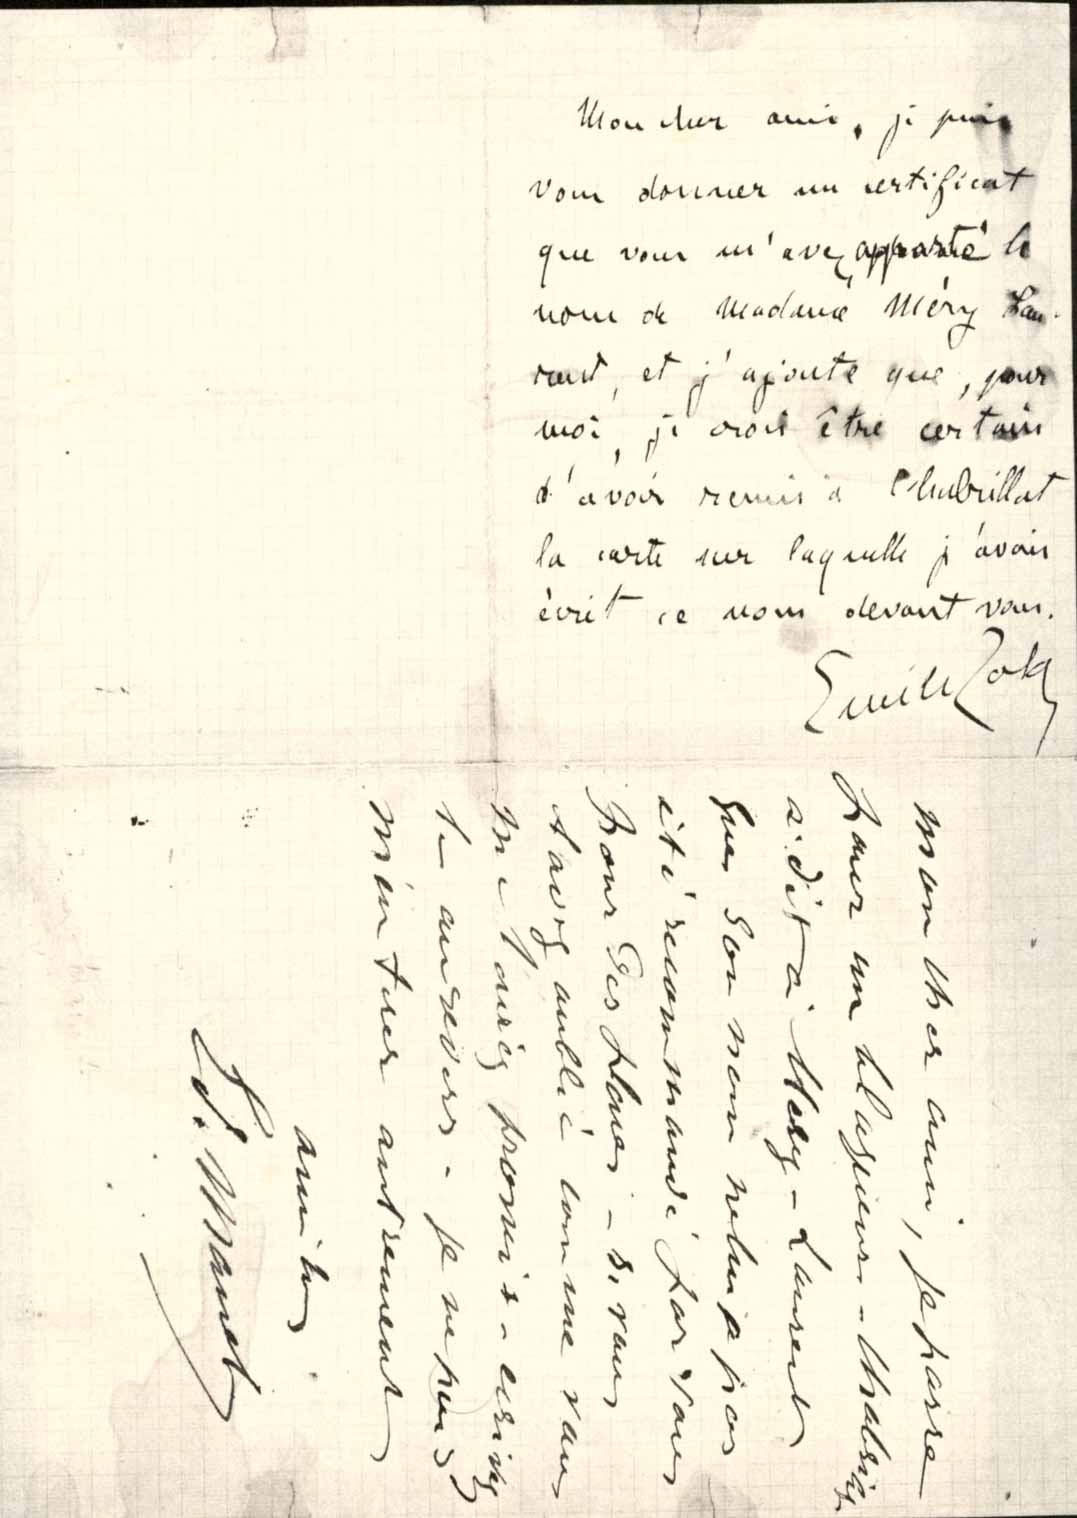 Mon cher ami, je puis
vous donner un certificat
que vous m'avez apporté le
nom de Madame Méry Lau-
rent, et j'ajoute que, pour
moi, je crois être certain
d'avoir remis à Chabrillat
la carte sur laquelle j'avais
écrit ce nom devant vous.
Emile Zola
mon cher ami, je passe
pour un blagueur - Chabrillat
a dit à Mery - Laurent
que son nom ne lui a pas
été recommandé par vous
Pour des places - si vous
l'avez oublié comme vous
me l'aviez promis - écrivez
au revers - je ne puis
autrement
amitiés
Ed. Manet